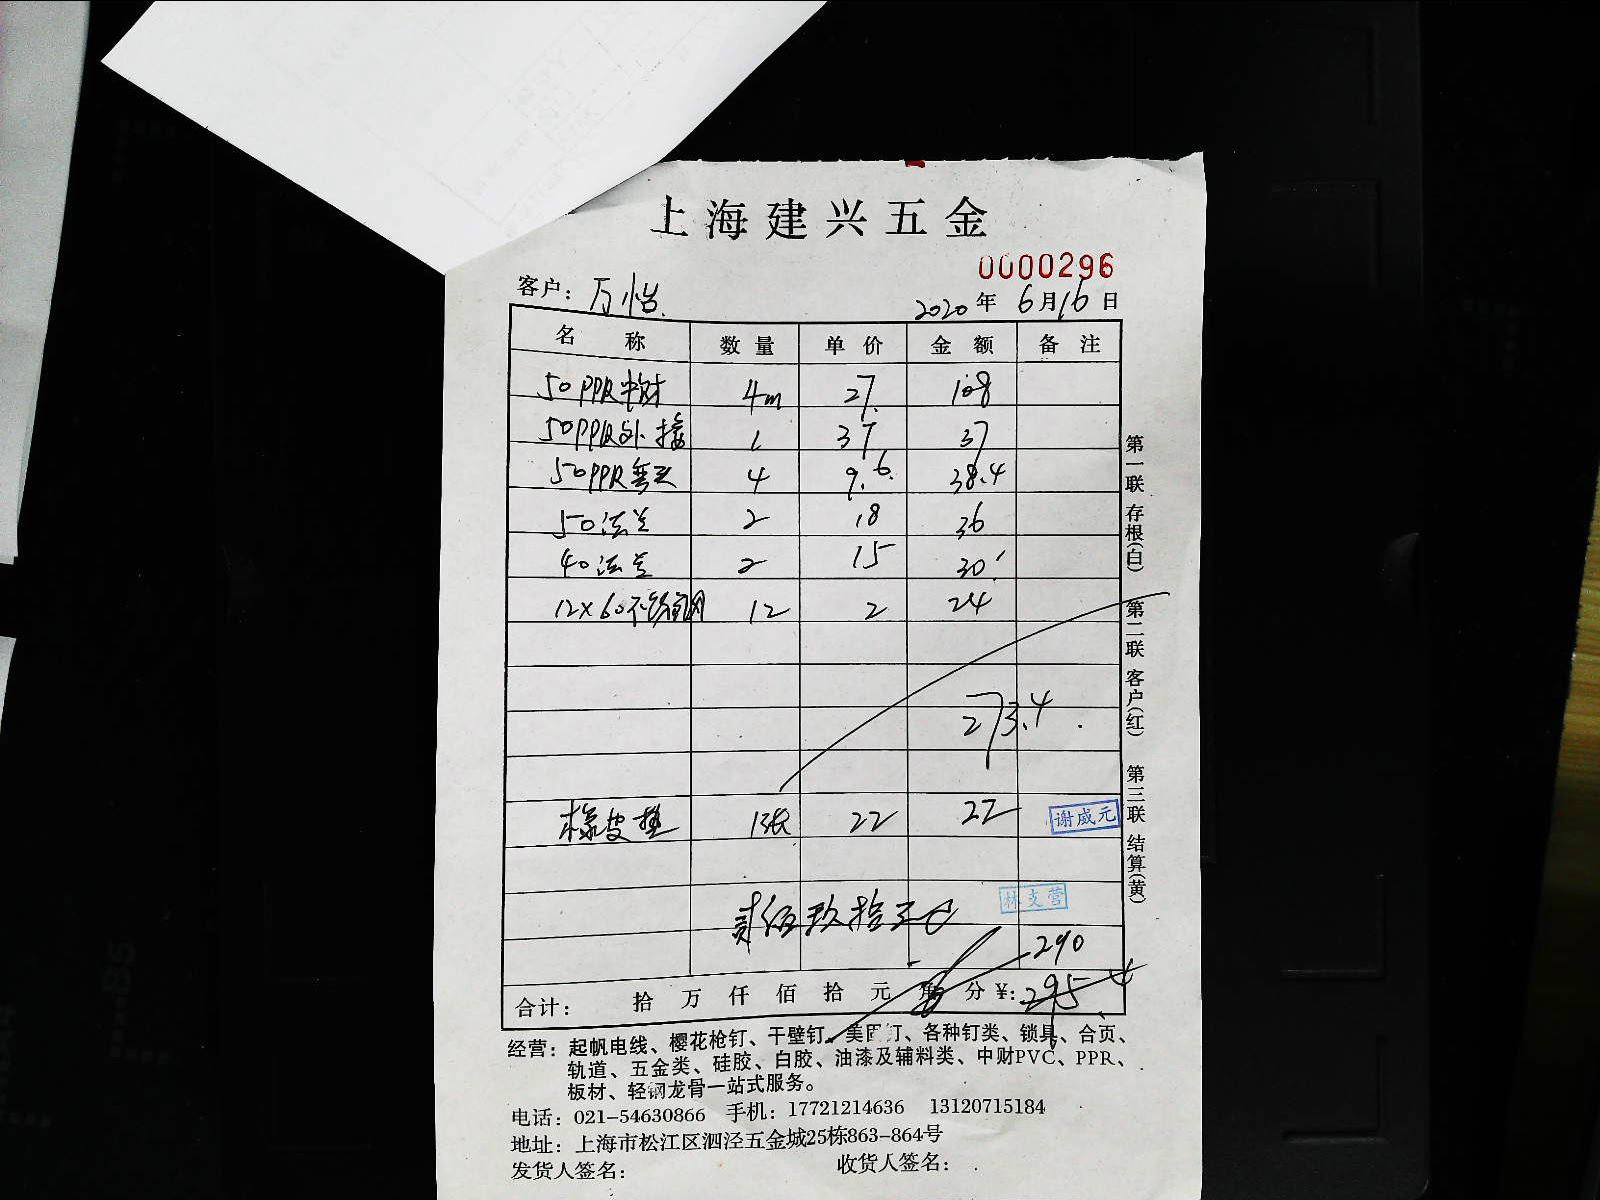 上海建兴五金
0000296
客户：万怡
2020年6月16日
名称 数量 单价 金额 备注
50PPR中财 4m 27. 108
50PPR外接 1 37 37
50PPR弯头 4 9.6 38.4
50法兰 2 18 36
40法兰 2 15 30
12×60不锈钢 12 2 24
273.4
橡皮垫 1张 22 22
谢威元
林支营
贰佰玖拾元
290
合计： 拾 万 仟 佰 拾 元 角 分 ¥: 295.4
经营：起帆电线、樱花枪钉、干壁钉、美固钉、各种钉类、锁具、合页、
轨道、五金类、硅胶、白胶、油漆及辅料类、中财PVC、PPR、
板材、轻钢龙骨一站式服务。
电话：021-54630866 手机：17721214636 13120715184
地址：上海市松江区泗泾五金城25栋863-864号
发货人签名： 收货人签名：
第一联 存根(白) 第二联 客户(红) 第三联 结算(黄)